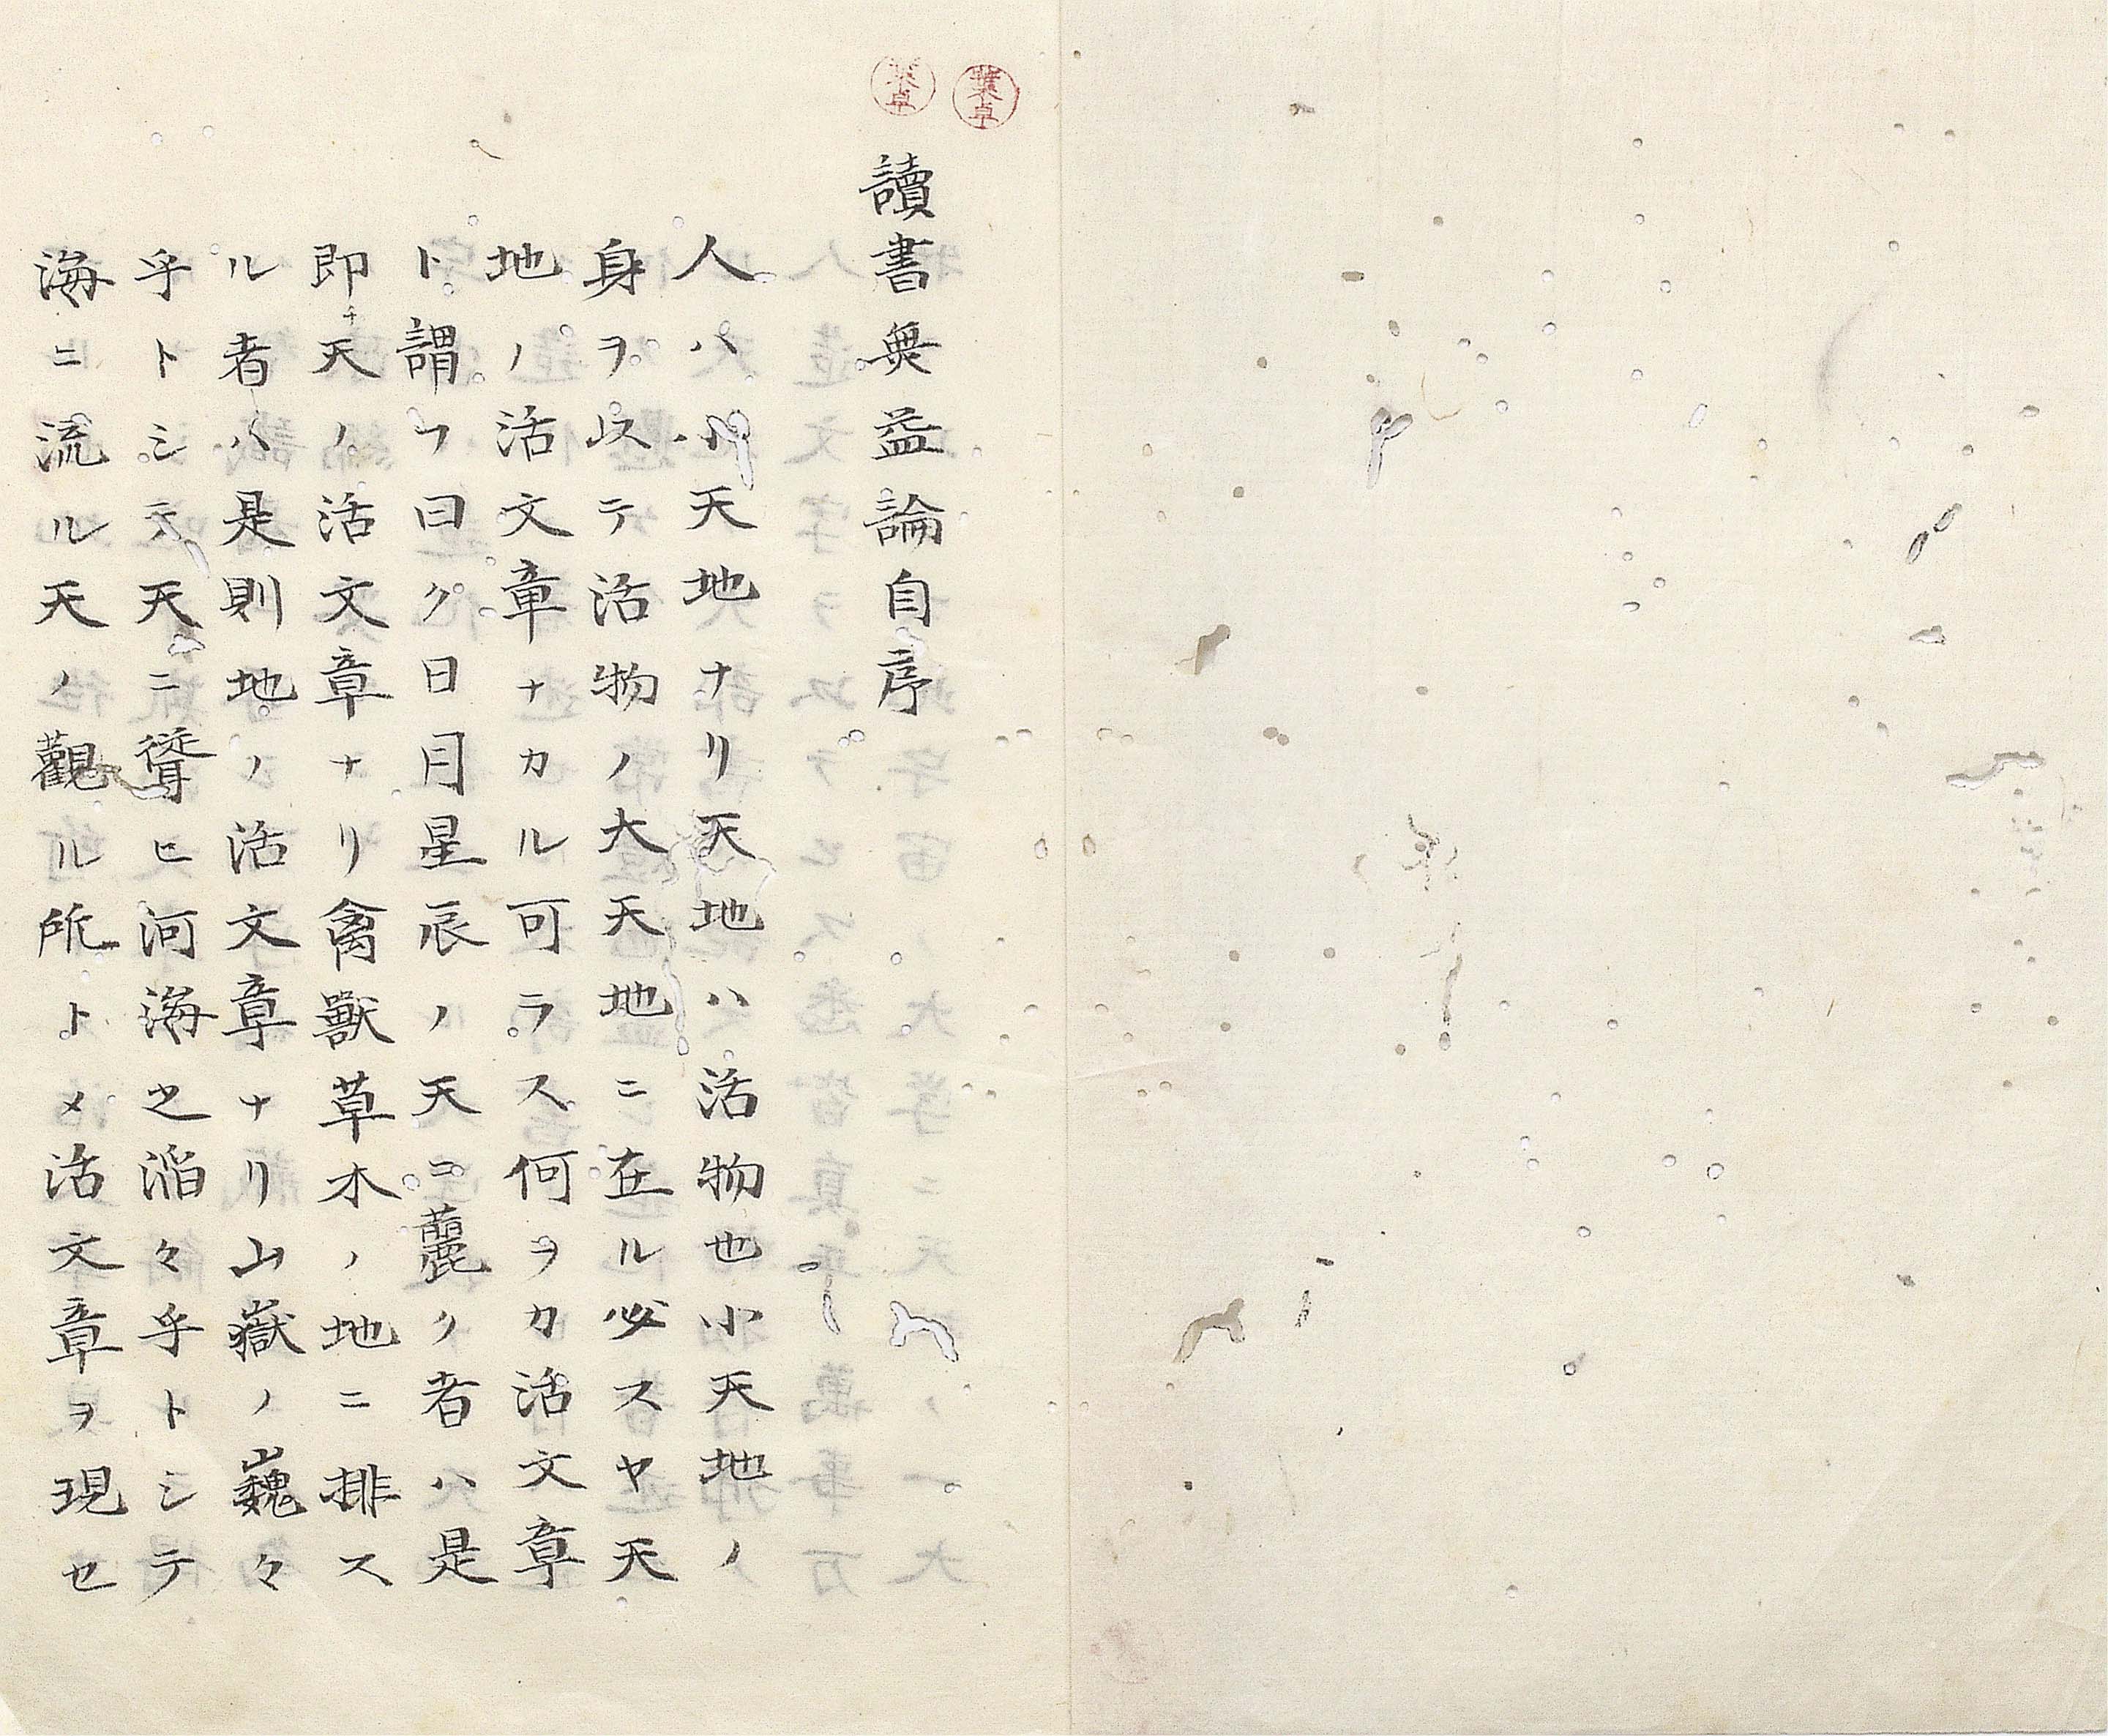 讀書無益論自序
人ハ小天地ナリ天地ハ活物也小天地ノ
身ヲ以テ活物ノ大天地ニ在ル必スヤ天
地ノ活文章ナカル可ラス何ヲカ活文章
ト謂フ曰ク日月星辰ノ天ニ麗ク者ハ是
即チ天ノ活文章ナリ禽獸草木ノ地ニ排ス
ル者ハ是則地ノ活文章ナリ山嶽ノ巍々
乎トシテ天ニ聳ヒ河海之滔々乎トシテ
海ニ流ル天ノ觀ル所トメ活文章ヲ現セ